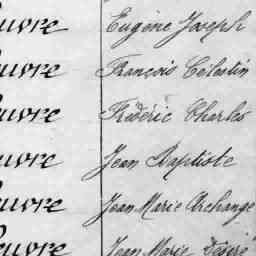 euvre Eugène Joseph
euvre François Célestin
euvre Frédéric Charles
euvre Jean Baptiste
euvre Jean Marie Archange
euvre Jean Marie Désiré